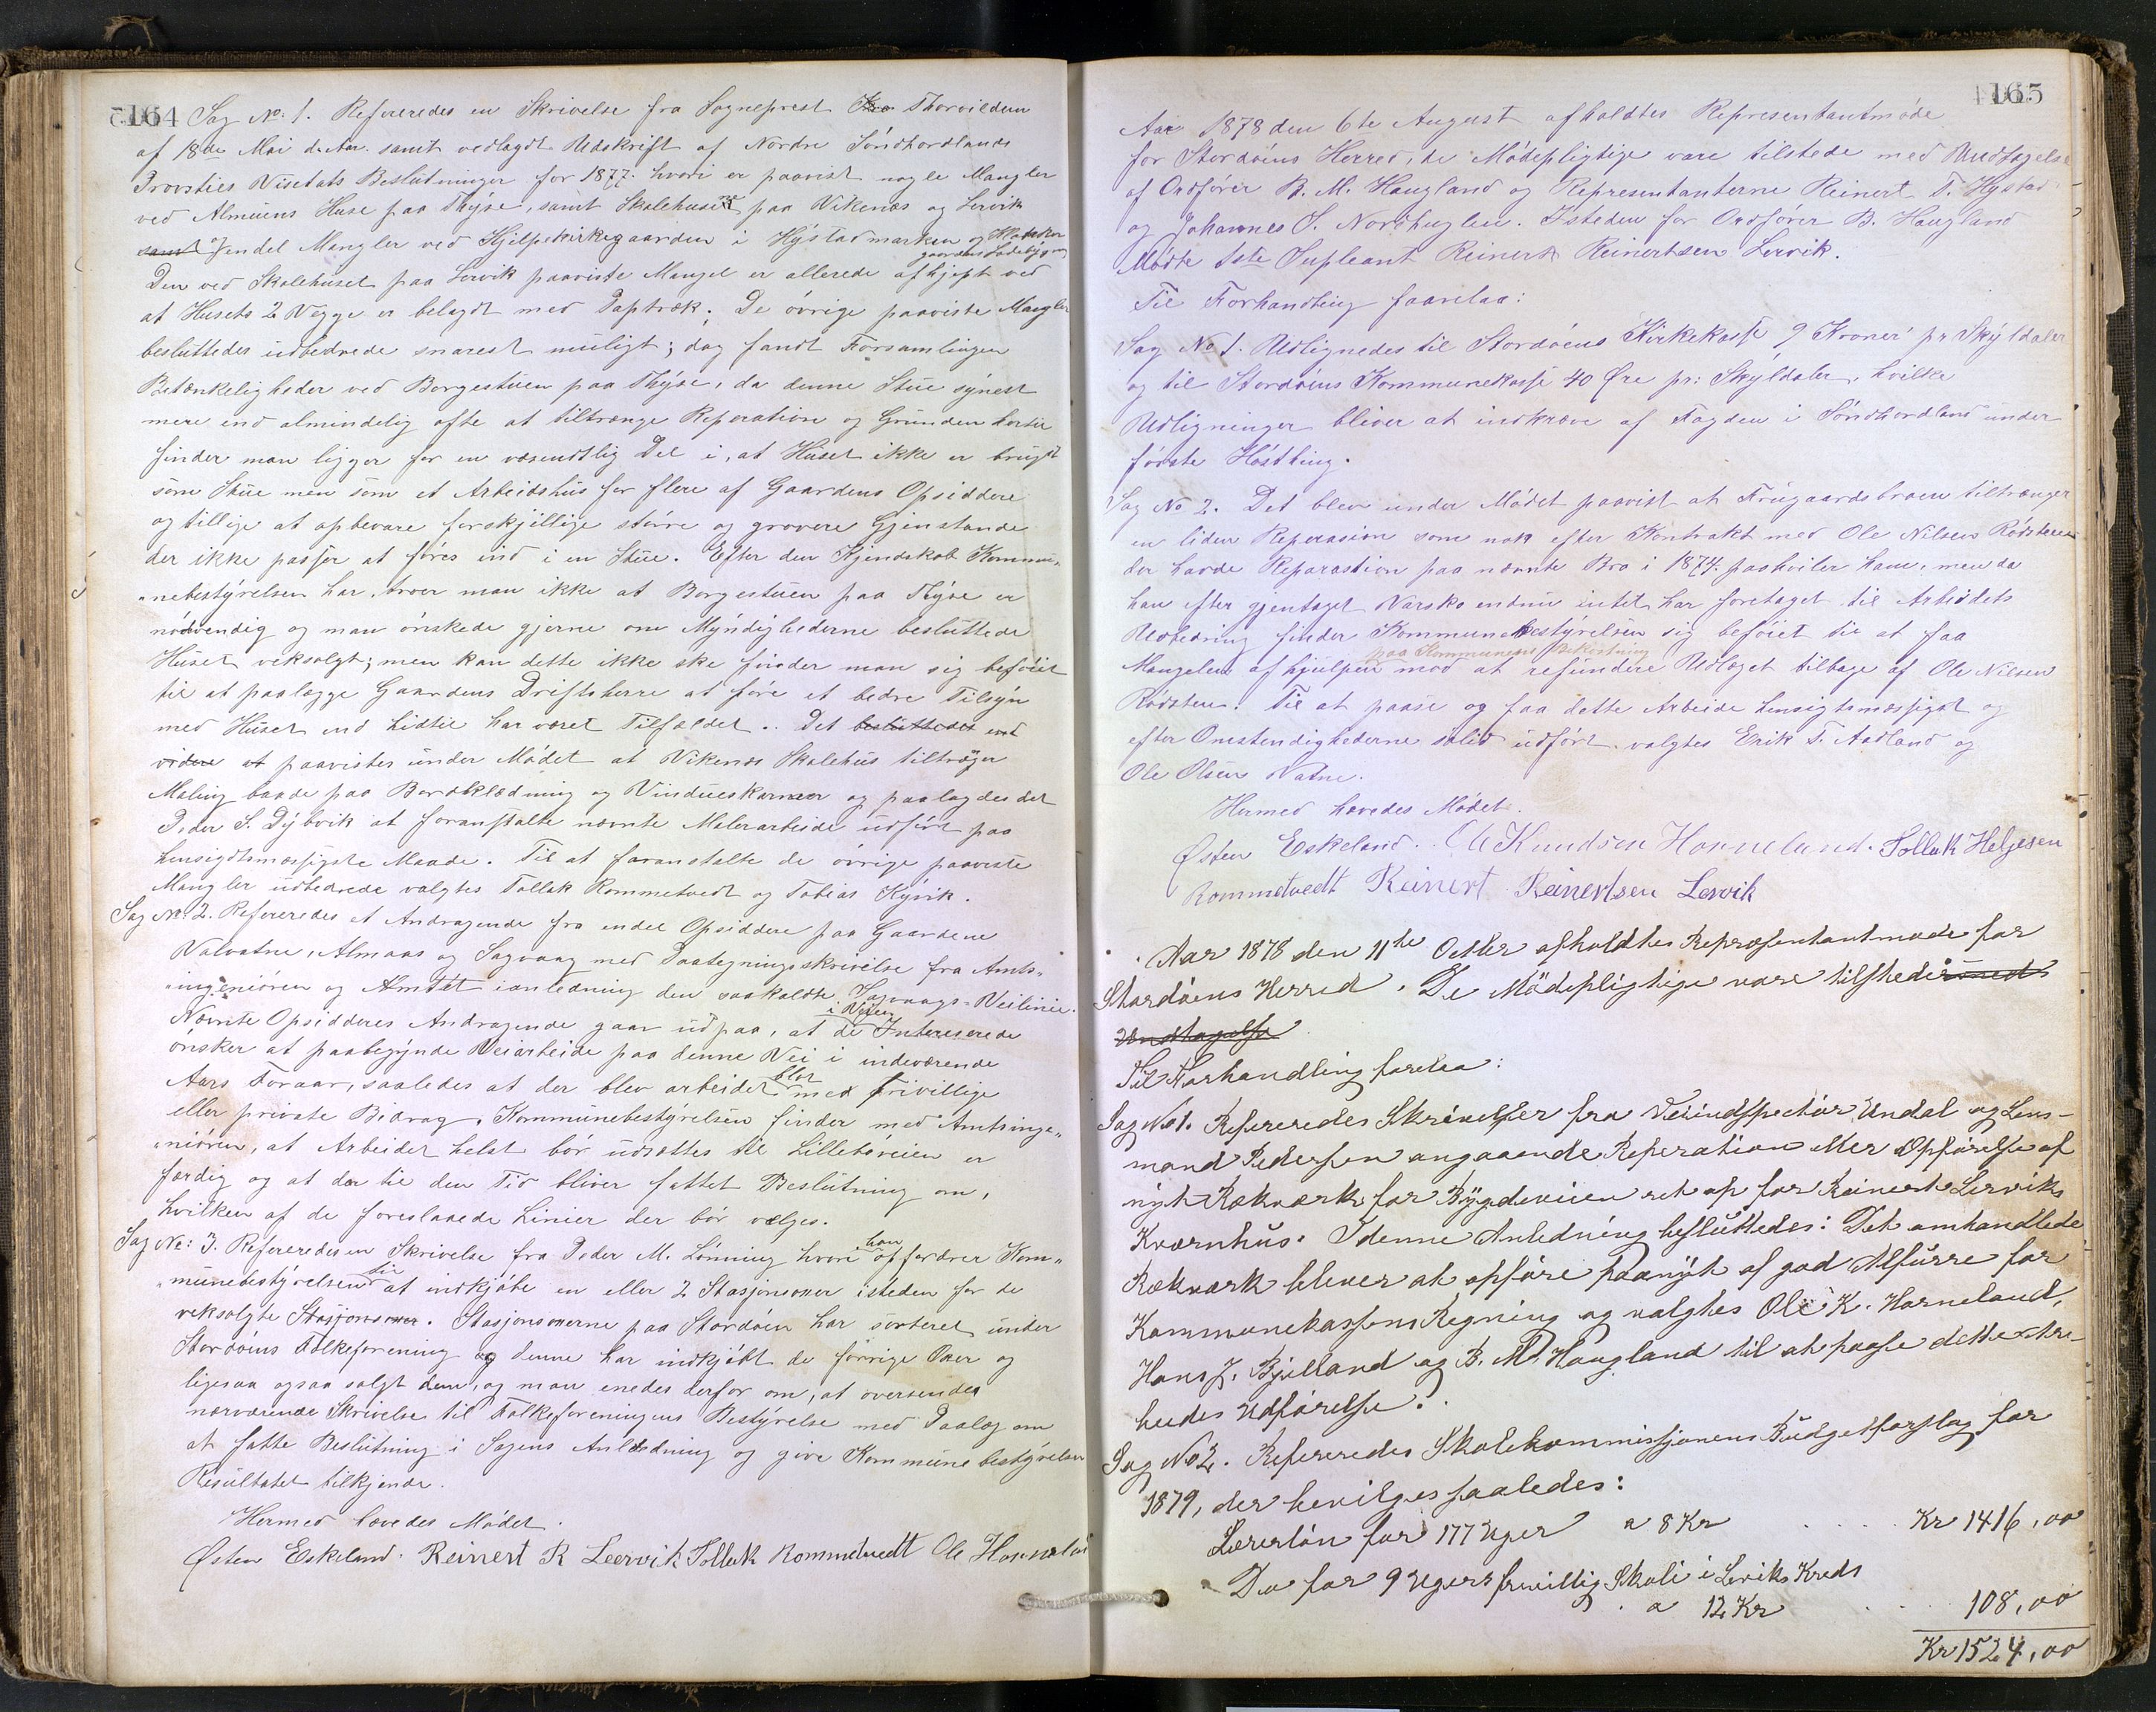 164
Sag No: 1. Refereredes en Skrivelse fra Sogneprest Thorvildsen
af 18de Mai d. Aar. samt vedlagdt Udskrift af Nordre Söndhordlands
Provsties Visetats Beslutninger for 1877. hvori er paavist nogle Mangler
ved Almuens Huse paa Thyse, samt Skolehuset paa Vikenæs og Lervik
samt og endel Mangler ved Hjelpekirkegaarden i Hystadmarken og
Den ved Skolehuset paa Lervik paaviste Mangel er allerede afhjept ved
at Husets 2 Vegge er belagdt med Paptræk. De övrige paaviste Mangler
besluttedes udbedrede snarest muligt; dog fandt Forsamlingen
Betænkeligheder ved Borgestuen paa Thyse, da denne Stue synest
mere end almindelig ofte at tiltrænge Reperation og Grunden hertil
finder man ligger for en væsendtlig Del i, at Huset ikke er brugt
som Stue men som et Arbeidshus for flere af Gaardens Opsiddere
og tillige at opbevare forskjellige större og grovere Gjenstande
der ikke passer at föres ind i en Stue. Efter den Kjendskab Kommu-
nebestyrelsen har, troer man ikke at Borgestuen paa Thyse er
nödvendig og man önskede gjerne om Myndighederne besluttede
Huset veksolgt; men kan dette ikke ske finder man sig beföiet
til at paalægge Gaardens Driftsherre at före et bedre Tilsyn
med Huset end hidtil har været Tilfældet. Det besluttedes end
videre at paavistes under Mödet at Vikenæs Skolehus tiltræger
Maling baade paa Bordklædning og Vindueskarmer og paalagdes det
Peder S. Dybvik at foranstalte nævnte Malerarbeide udfört paa
hensigtsmæssigste Maade. Til at foranstalte de övrige paaviste
Mangler udbedrede valgtes Tollak Rommetvedt og Tobias Kyvik.
Sag No: 2. Refereredes et Andragende fra endel Opsiddere paa Gaardene
Valvatne, Almaas og Sagvaag med Paategningsskrivelse fra Amts-
ingeniören og Amtet ianledning den saakaldte Sagvaags-Veilinie.
Nævnte Opsidderes Andragende gaar ud paa, at de i Veien Intereserede
önsker at paabegynde Veiarbeide paa denne Vei i indeværende
Aars Foraar, saaledes at der blev arbeidet blot med frivillige
eller private Bidrag. Kommunebestyrelsen finder med Amtsinge-
niören, at Arbeidet helst bör udsættes til Lilleböveien er
færdig og at der til den Tid bliver fattet Beslutning om,
hvilken af de foreslaaede Linier der bör vælges.
Sag No: 3. Refereredes en Skrivelse fra Peder M. Lönning hvori han opfordrer Kom-
munebestyrelsen til at indkjöbe en eller 2 Stasjonsoxer isteden for de
veksolgte Stasjonsoxer. Stasjonsoxerne paa Stordöen har sorteret under
Stordöens Folkeforening og denne har indkjöbt de forrige Oxer og
ligesaa ogsaa solgt dem, og man enedes derfor om, at oversendes
nærværende Skrivelse til Folkeforeningens Bestyrelse med Paalæg om
at fatte Beslutning i Sagens Anledning og give Kommunebestyrelsen
Resultatet tilkjende.
Hermed hævedes Mödet.
Østen Eskeland. Reinert R Leervik Tollak Rommetvedt Ole Horneland
165
Aar 1878 den 6te August afholdtes Representantmöde
for Stordöens Herred, de Mödepligtige vare tilstede med Undtagelse
af Ordförer B. M. Haugland og Representanterne Reinert T. Hystad
og Johannes S. Nordhuglen. Isteden for Ordförer B. Haugland
Mödte 1ste Supleant Reinert Reinertsen Lervik.
Til Forhandling faarelaa:
Sag No 1. Udlignedes til Stordöens Kirkekasse 9 Kroner pr Skyldaler
og til Stordöens Kommunekasse 40 Øre pr: Skyldaler, hvilke
Udligninger bliver at indkræve af Fogden i Söndhordland under
förste Hösthing.
Sag No 2. Det blev under Mödet paavist at Frugaardsbroen tiltrænger
en liden Reperasion som nok efter Kontrakt med Ole Nilsen Rödsteen
der havde Reparastion paa nævnte Bro i 1874. paahviler ham, men da
han efter gjentaget Varsko endnu intet har foretaget til Arbeidets
Udbedring finder Kommunebestyrelsen sig beföiet til at faa
Mangelen afhjulpen paa Kommunens Bekostning mod at refundere Udlæget tilbage af Ole Nilsen
Rödsten. Til at paase og faa dette Arbeide hensigtsmæssigst og
efter Omstendighederne solid udfört valgtes Erik T. Aadland og
Ole Olsen Vatne.
Hermed hævedes Mödet.
Østen Eskeland. Ole Knudsen Horneland. Tollak Helgesen
Rommetvedt Reinert Reinertsen Lervik
Aar 1878 den 11te Octbr afholdtes Repræsentantmøde for
Stordöens Herred. De Mödepligtige vare tilstede med
Undtagelse
Til Forhandling forelaa:
Sag No 1. Refereredes Skrivelser fra Veiindspectör Undal og Lens-
mand Pedersen angaaende Reperation eller Opförelse af
nyt Rækværk for Bygdeveien ret op for Reinert Lerviks
Kværnhus. I denne Anledning besluttedes: Det omhandlede
Rækværk bliver at opföre paanyt af god Alfurre for
Kommunekassens Regning og valgtes Ole K. Horneland,
Hans J. Bjelland og B. M. Haugland til at paase dette Ar-
beides Udförelse.
Sag No 2. Refereredes Skolekommissjonens Budgetforslag for
1879, der bevilges saaledes:
Lærerlön for 177 Uger a 8 Kr .... Kr 1416,00
Do for 9 Ugers frivillig Skole i Lerviks Kreds
a 12 Kr .... 108,00
Kr 1524,00